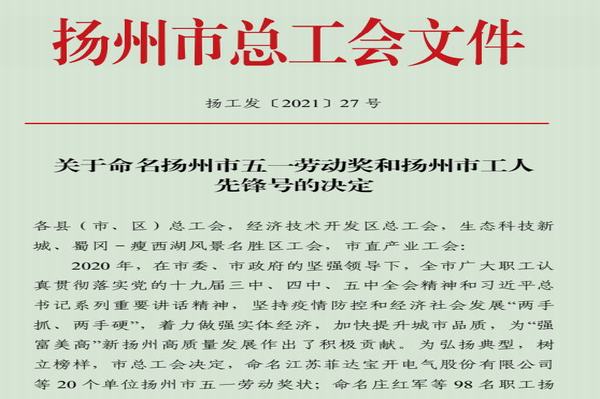 扬州市总工会文件
扬工发〔2021〕27号
关于命名扬州市五一劳动奖和扬州市工人
先锋号的决定
各县（市、区）总工会，经济技术开发区总工会，生态科技新
城、蜀冈－瘦西湖风景名胜区工会，市直产业工会：
2020年，在市委、市政府的坚强领导下，全市广大职工认
真贯彻落实党的十九届三中、四中、五中全会精神和习近平总
书记系列重要讲话精神，坚持疫情防控和经济社会发展“两手
抓、两手硬”，着力做强实体经济，加快提升城市品质，为“强
富美高”新扬州高质量发展作出了积极贡献。为弘扬典型，树
立榜样，市总工会决定，命名江苏菲达宝开电气股份有限公司
等20个单位扬州市五一劳动奖状；命名庄红军等98名职工扬